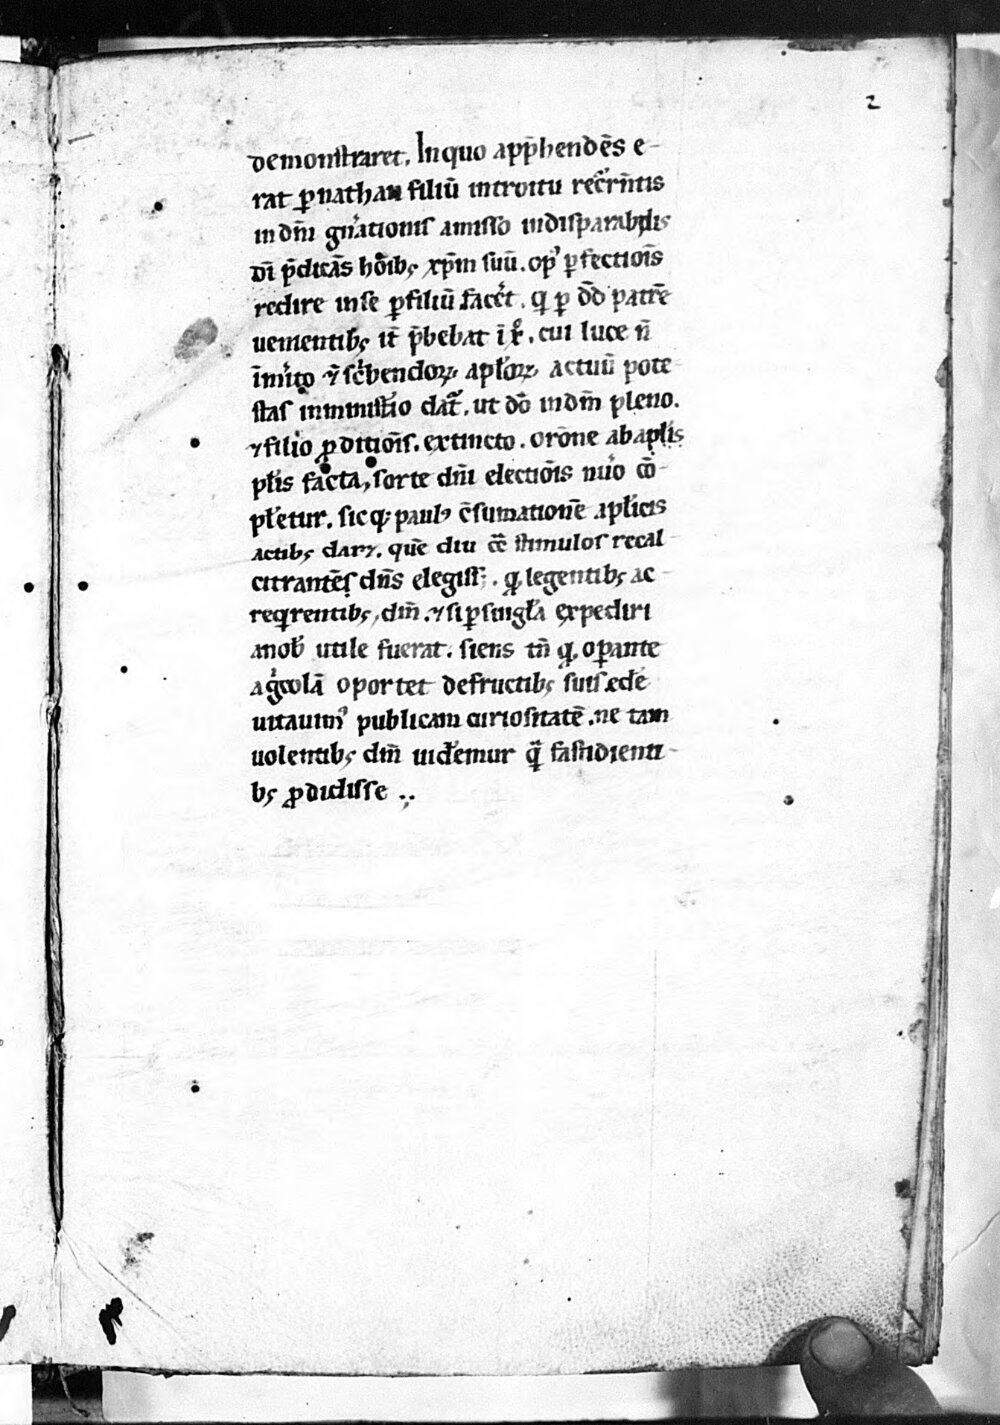 2
demonstraret. In quo app̄hendēs e-
rat ꝑ nathan filiū introitu recͬrn̄tis
in dm̄ gnͬationis amisso indisparabilis
dī p̄dicās hōibꝫ xp̄m suū. opꝰ ꝑfectiōis
redire in se ꝑ filiū facēt. qͥ ꝑ dd̄ patrē
uenientibꝫ it̄ p̄bebat ī xͦ. cui luce ñ
īmͥto ⁊ sͨbendoꝝ apl̄oꝝ actuū pote-
stas in minist̄io datͬ. ut dō in dm̄ pleno.
⁊ filio ꝓditiōis. extincto. orōne ab apl̄is
pl̄is facta, sorte dn̄i electiōis nūo cō-
pl̄etur. sicqꝫ paulꝰ c̄sumationē apl̄icis
actibꝫ daret. quē diu cͣ stimulos recal-
citrantēs dn̄s elegiss;. qͩ legentibꝫ ac
reqͥrentibꝫ dm̄. ⁊ si ꝑ singl̄a expediri
a nob̄ utile fuerat. sciens tn̄ qͩ oꝑante
agͥcolā oportet de fructibꝫ suis ede͛
uitauimꝰ publicam curiositatē. ne tam
uolentibꝫ dm̄ uid̄emur qͣ̄ fastidienti-
bꝫ ꝓdidisse ..